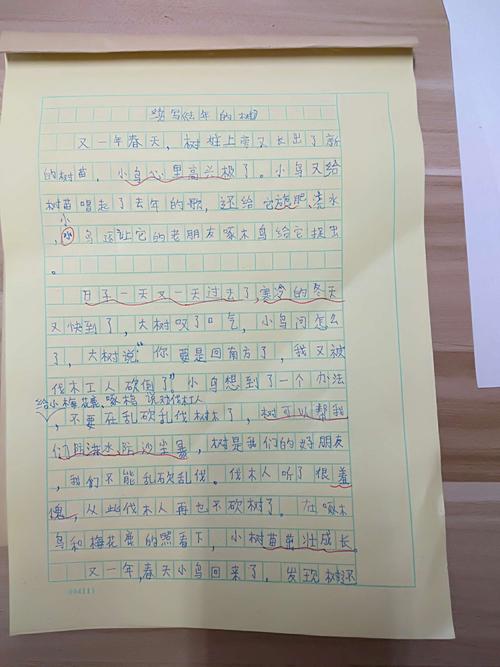 续写《去年的树》
又一年春天，树桩上面又长出了新
的树苗，小鸟心里高兴极了。小鸟又给
树苗唱起了去年的歌，还给它施肥、浇水
，小鸟还让它的老朋友啄木鸟给它捉虫
。
日子一天又一天过去了，寒冷的冬天
又快到了，大树叹了口气，小鸟问怎么
了，大树说“你要是回南方了，我又被
伐木工人砍倒了”小鸟想到了一个办法
给小梅花鹿、啄木鸟 说对伐木工人
，不要在乱砍乱伐树木了，树可以帮我
们防洪水防沙尘暴，树是我们的好朋友
，我们不能乱砍乱伐。伐木人听了很羞
愧，从此伐木人再也不砍树了。在啄木
鸟和梅花鹿的照看下，小树苗茁壮成长。
又一年，春天小鸟回来了，发现树